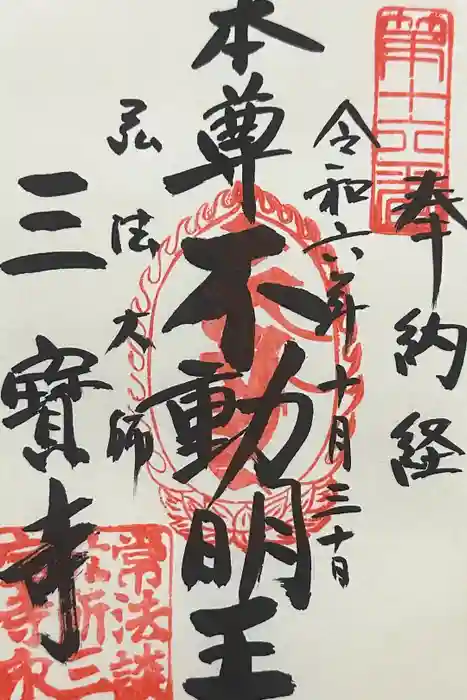 奉納経
令和六年十月三十日
本尊不動明王
弘法大師
三寶寺